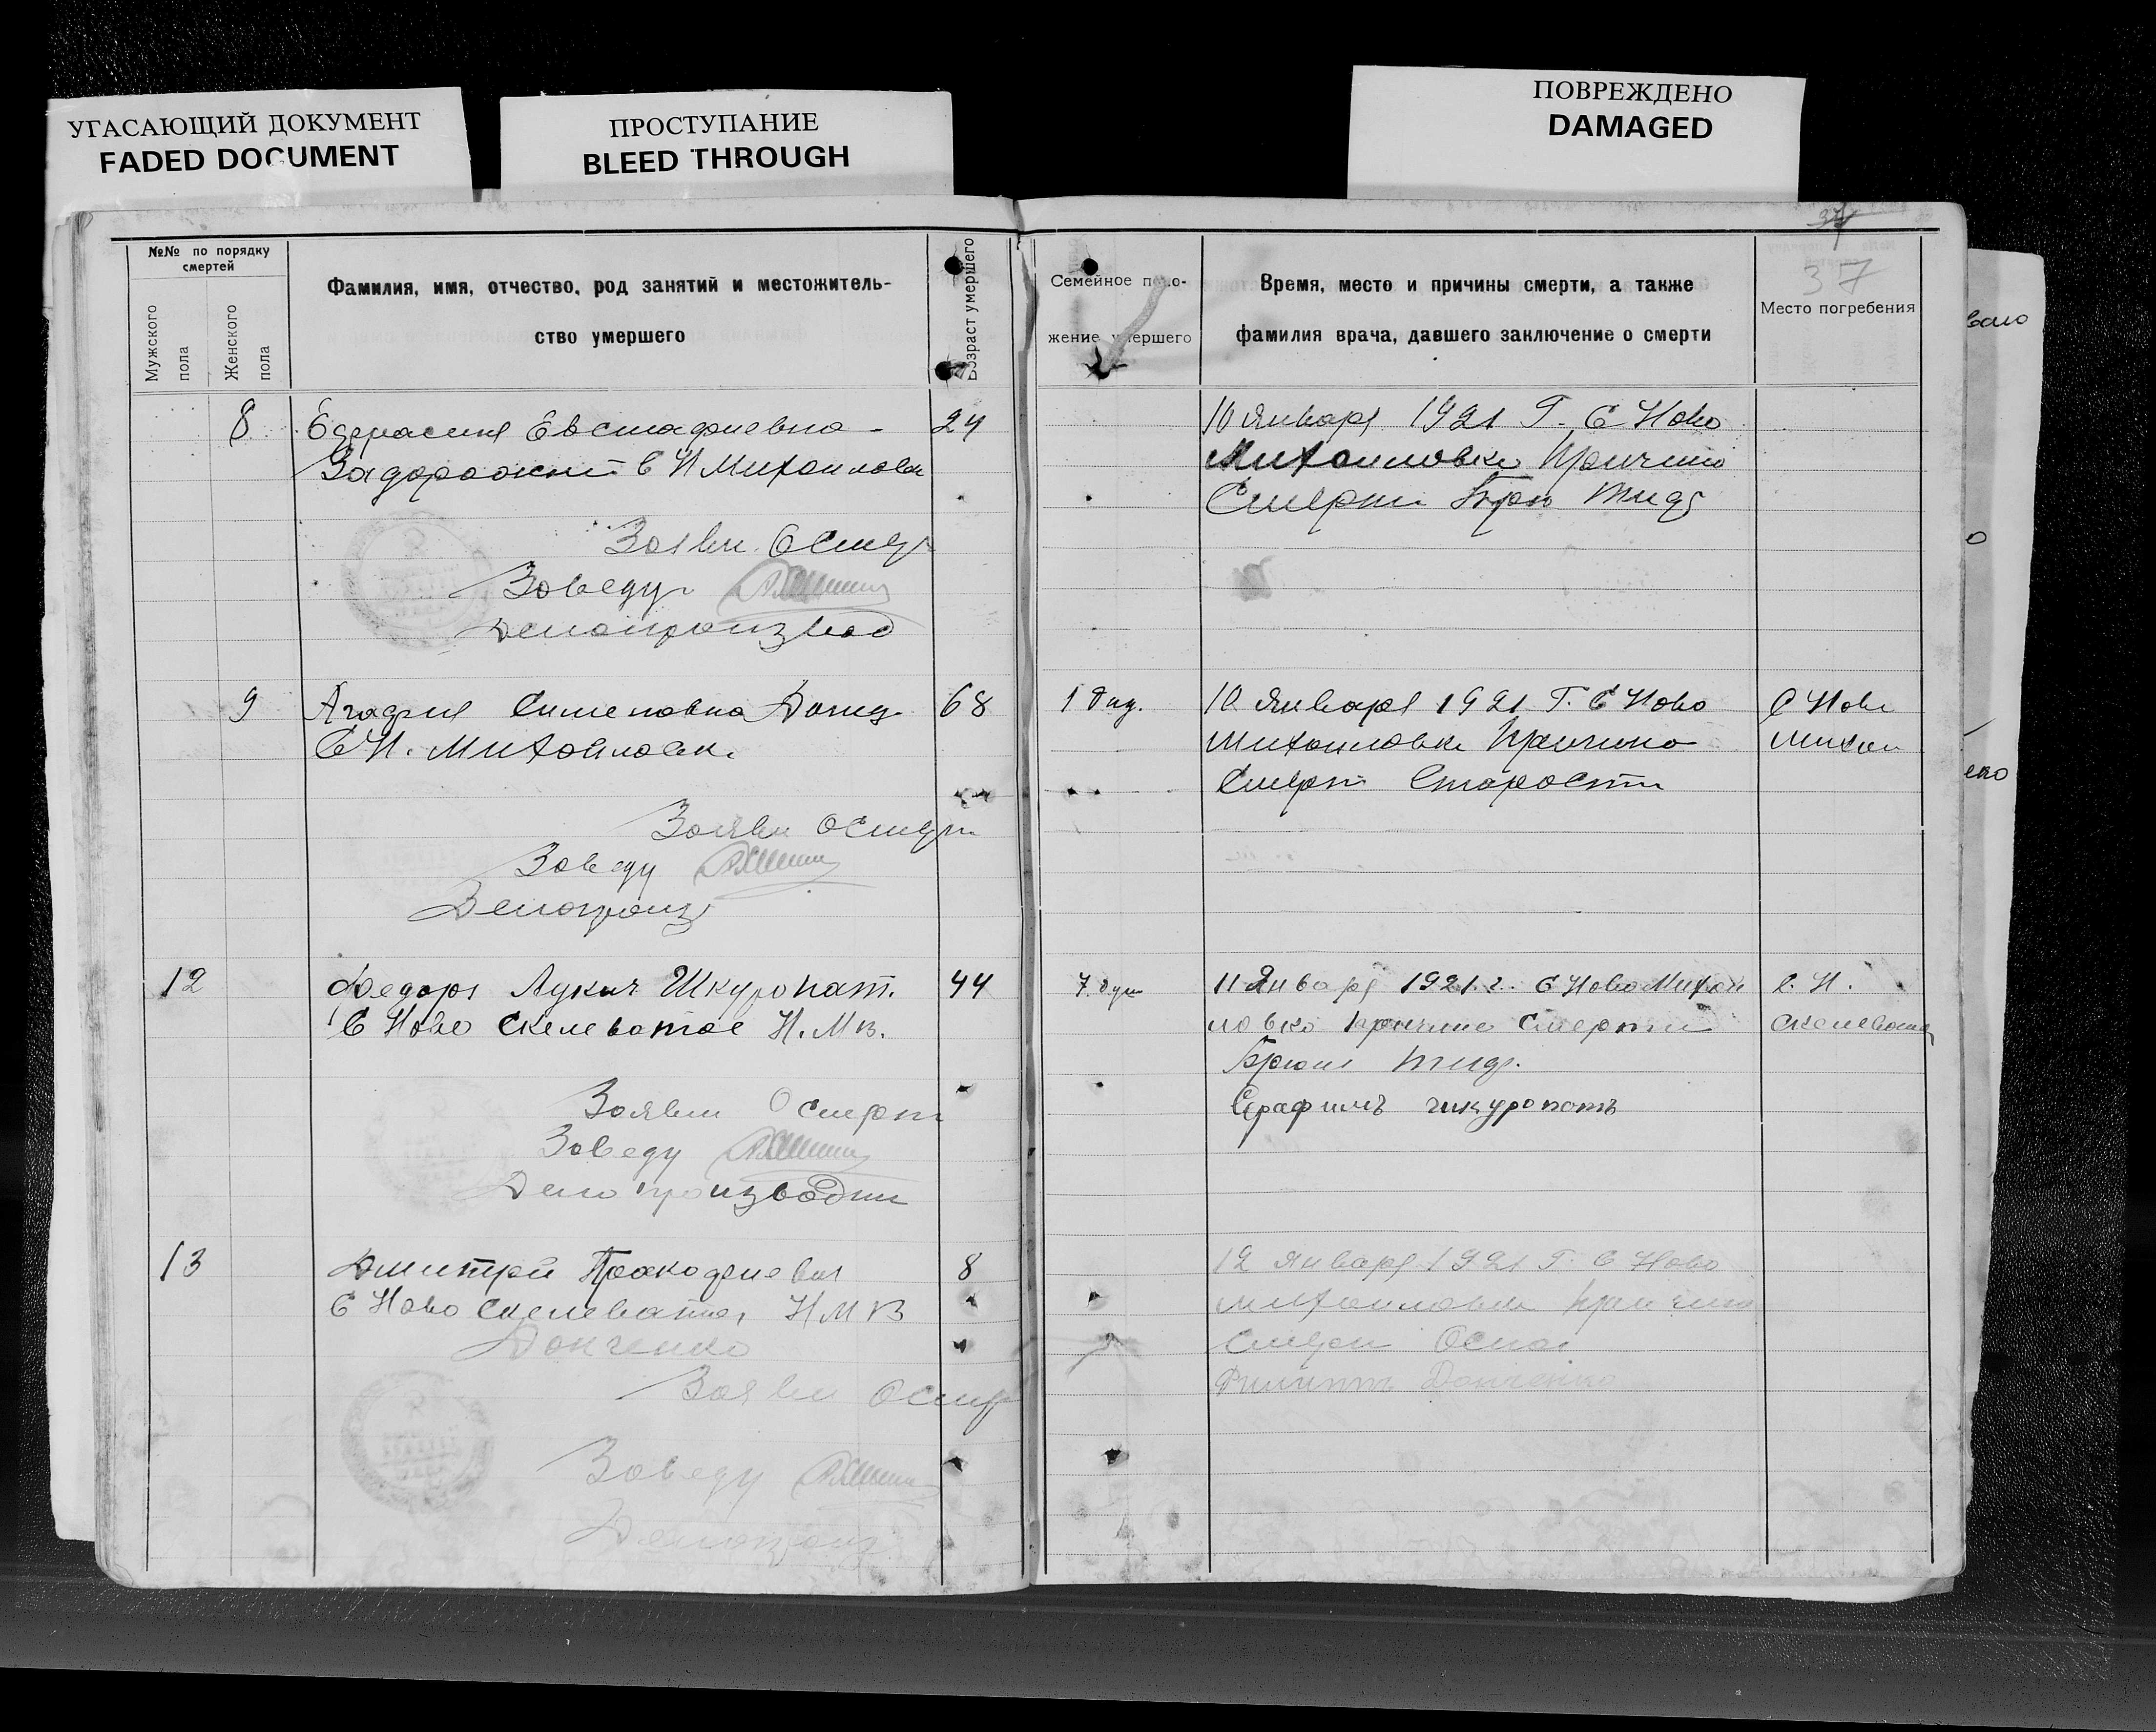 УГАСАЮЩИЙ ДОКУМЕНТ
FADED DOCUMENT
ПРОСТУПАНИЕ
BLEED THROUGH
ПОВРЕЖДЕНО
DAMAGED
37
37
№№ по порядку смертей
Мужского пола
Женского пола
Фамилия, имя, отчество, род занятий и местожитель-
ство умершего
Возраст умершего
Семейное поло-
жение умершего
Время, место и причины смерти, а также
фамилия врача, давшего заключение о смерти
Место погребения
8 Евстафиевна 24
Задорожн С Н Михоиловк
Заяви О Смер
Заведу
Делопроизвод
10 Января 1921 Г. С Ново
Михоиловке Причино
Смерти Брю Тид
9 Агафия Сименовна 68 1
С Н. Михоиловк.
Заяви О Смерти
Заведу
Делопроиз
10 Января 1921 Г. С Ново
Михоиловке Причино
Смерт Старости
С Нове
Михои
12 Федорь Лукич Шкуропат. 44 7. душ
С Ново Скелеватое Н. М в.
Заяви О Смерт
Заведу
Делопроизводит
11 Январ 1921 г. С Ново Михои
ловко причино Смерти
Брюш тид.
Серафимъ чкуропатъ
С. Н.
Скелевата
13 Дмитрей Прокофиевич 8
С Ново Скелеватое Н М В
Донченко
Заяви О Смер
Заведу
Делопроиз
12 Январ 1921 Г. С Ново
Михоиловк причино
Смерти Оспа
Филиппъ Донченко